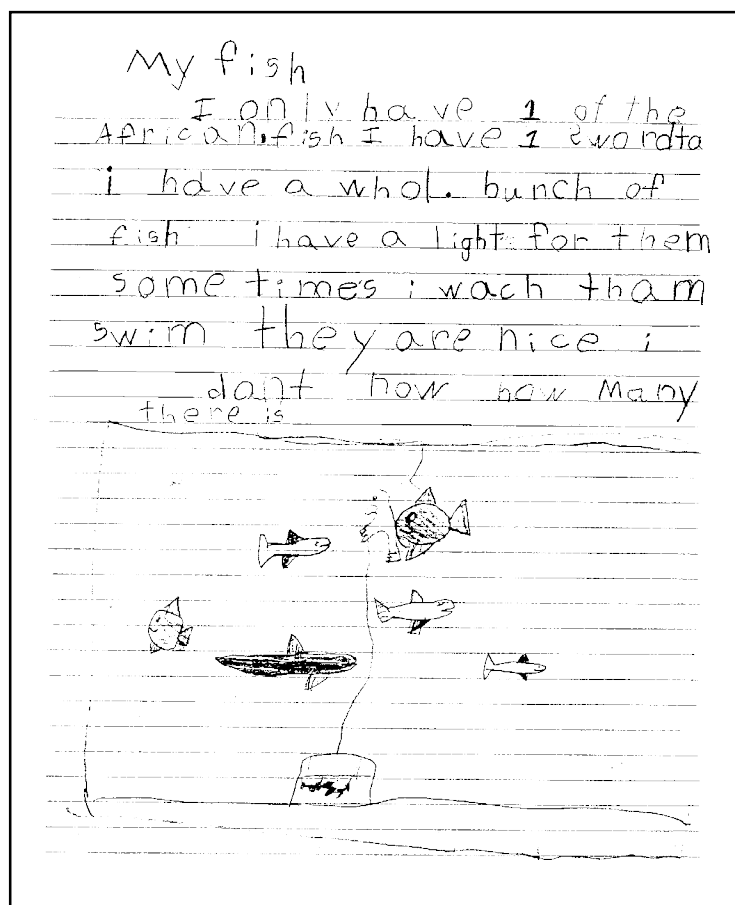 My fish
I only have 1 of the
African fish I have 1 swordta
i have a whol. bunch of
fish i have a light for them
some times i wach tham
swim they are nice i
dant now how Many
there is